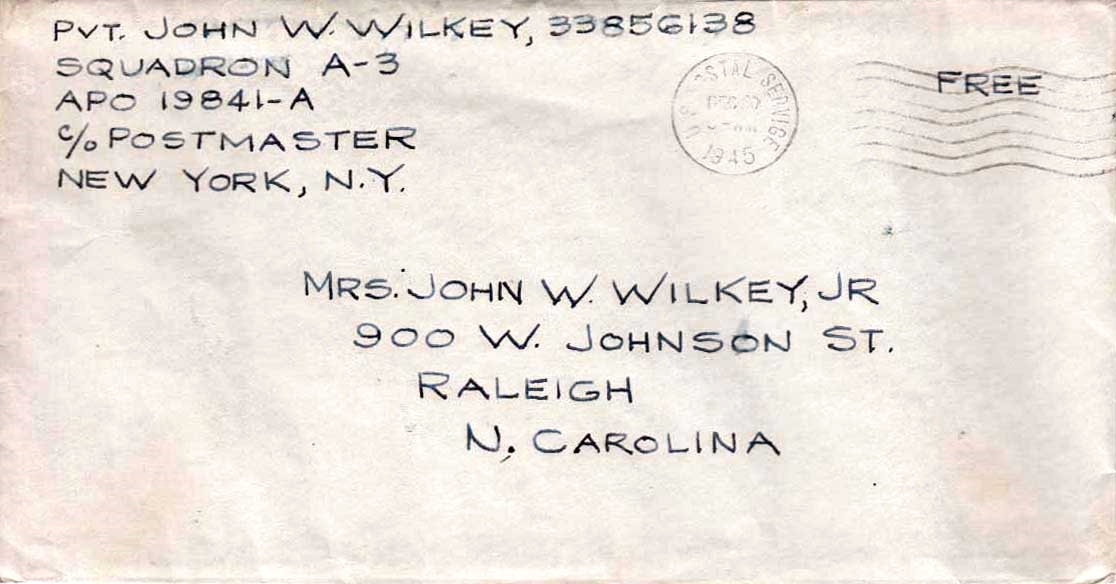 PVT. JOHN W. WILKEY, 33856138
SQUADRON A-3
APO 19841-A
c/o POSTMASTER
NEW YORK, N.Y.
U.S. POSTAL SERVICE
DEC
1945
FREE
MRS. JOHN W. WILKEY, JR
900 W. JOHNSON ST.
RALEIGH
N. CAROLINA